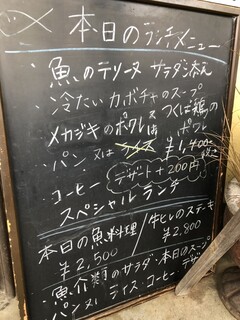 本日のランチメニュー
・魚のテリーヌ サラダ添え
・冷たいカボチャのスープ
メカジキのポワレ又は つくば鶏のポワレ
・パン 又は ライス ¥1,400
・コーヒー デザート+200円
スペシャルランチ
本日の魚料理 ¥2,500
牛ヒレのステーキ ¥2,800
魚介類のサラダ・本日のスープ
パン又はライス・コーヒー・デザ